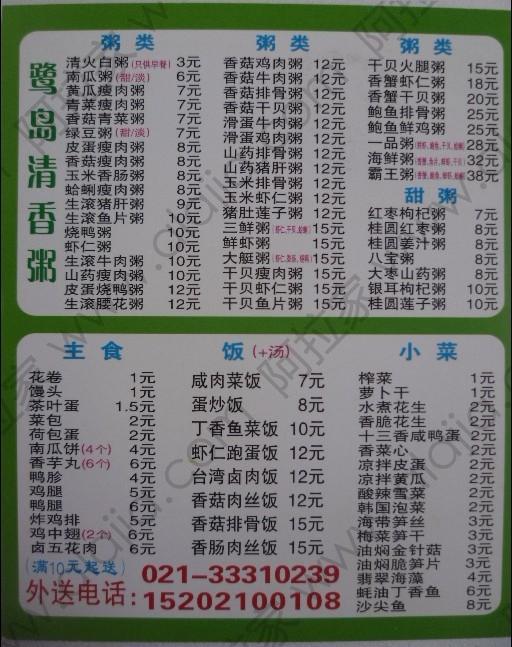 鹭岛清香粥
粥类
清火白粥(只供早餐) 3元
南瓜粥(甜/淡) 6元
黄瓜瘦肉粥 7元
青菜瘦肉粥 7元
香菇青菜粥 7元
绿豆粥(甜/淡) 7元
皮蛋瘦肉粥 8元
香菇瘦肉粥 8元
玉米香肠粥 8元
蛤蜊瘦肉粥 8元
生滚猪肝粥 9元
生滚鱼片粥 10元
烧鸭粥 10元
虾仁粥 10元
生滚牛肉粥 10元
山药瘦肉粥 10元
皮蛋烧鸭粥 12元
生滚腰花粥 12元
粥类
香菇鸡肉粥 12元
香菇牛肉粥 12元
香菇排骨粥 12元
香菇干贝粥 12元
滑蛋牛肉粥 12元
滑蛋鸡肉粥 12元
山药排骨粥 12元
山药猪肝粥 12元
玉米排骨粥 12元
玉米虾仁粥 12元
猪肚莲子粥 12元
三鲜粥 15元
鲜虾粥 15元
大艇粥 15元
干贝瘦肉粥 15元
干贝虾仁粥 15元
干贝鱼片粥 15元
粥类
干贝火腿粥 15元
香蟹虾仁粥 18元
香蟹干贝粥 20元
鲍鱼排骨粥 25元
鲍鱼鲜鸡粥 25元
一品粥 28元
海鲜粥 32元
霸王粥 38元
甜粥
红枣枸杞粥 7元
桂圆红枣粥 8元
桂圆姜汁粥 8元
八宝粥 8元
大枣山药粥 8元
银耳枸杞粥 10元
桂圆莲子粥 10元
主食
花卷 1元
馒头 1元
茶叶蛋 1.5元
菜包 2元
荷包蛋 2元
南瓜饼(4个) 4元
香芋丸(6个) 6元
鸭胗 4元
鸡腿 5元
鸭腿 6元
炸鸡排 5元
鸡中翅(2个) 6元
卤五花肉 6元
饭(+汤)
咸肉菜饭 7元
蛋炒饭 8元
丁香鱼菜饭 10元
虾仁跑蛋饭 12元
台湾卤肉饭 12元
香菇肉丝饭 12元
香菇排骨饭 15元
香肠肉丝饭 15元
小菜
榨菜 1元
萝卜干 1元
水煮花生 2元
香脆花生 2元
十三香咸鸭蛋 2元
香菜心 2元
凉拌皮蛋 2元
凉拌黄瓜 2元
酸辣雪菜 2元
韩国泡菜 2元
海带笋丝 3元
梅菜笋干 3元
油焖金针菇 3元
油焖脆笋片 3元
翡翠海藻 4元
蚝油丁香鱼 6元
沙尖鱼 8元
(满10元起送)
外送电话: 021-33310239
15202100108